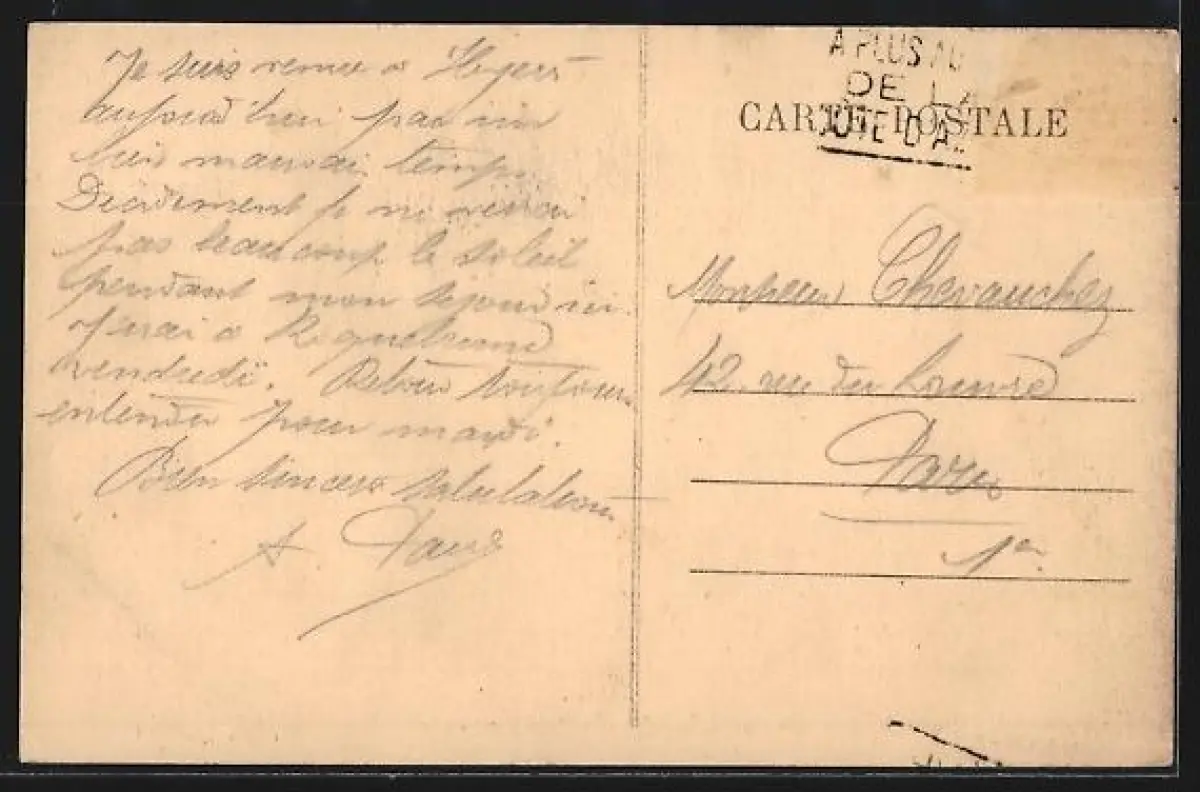 Je suis venue à Hyères
aujourd'hui par un
mauvai temps.
Décidement je ne verrai
pas beaucoup le soleil
pendant mon séjour ici.
J'irai à
vendredi. Retour toujours
entendu pour mardi.
Bien sincères salutations
A.
A PLUS
DE LA
CARTE POSTALE
Monsieur Chevauchez
42 rue du Louvre
Paris
1er